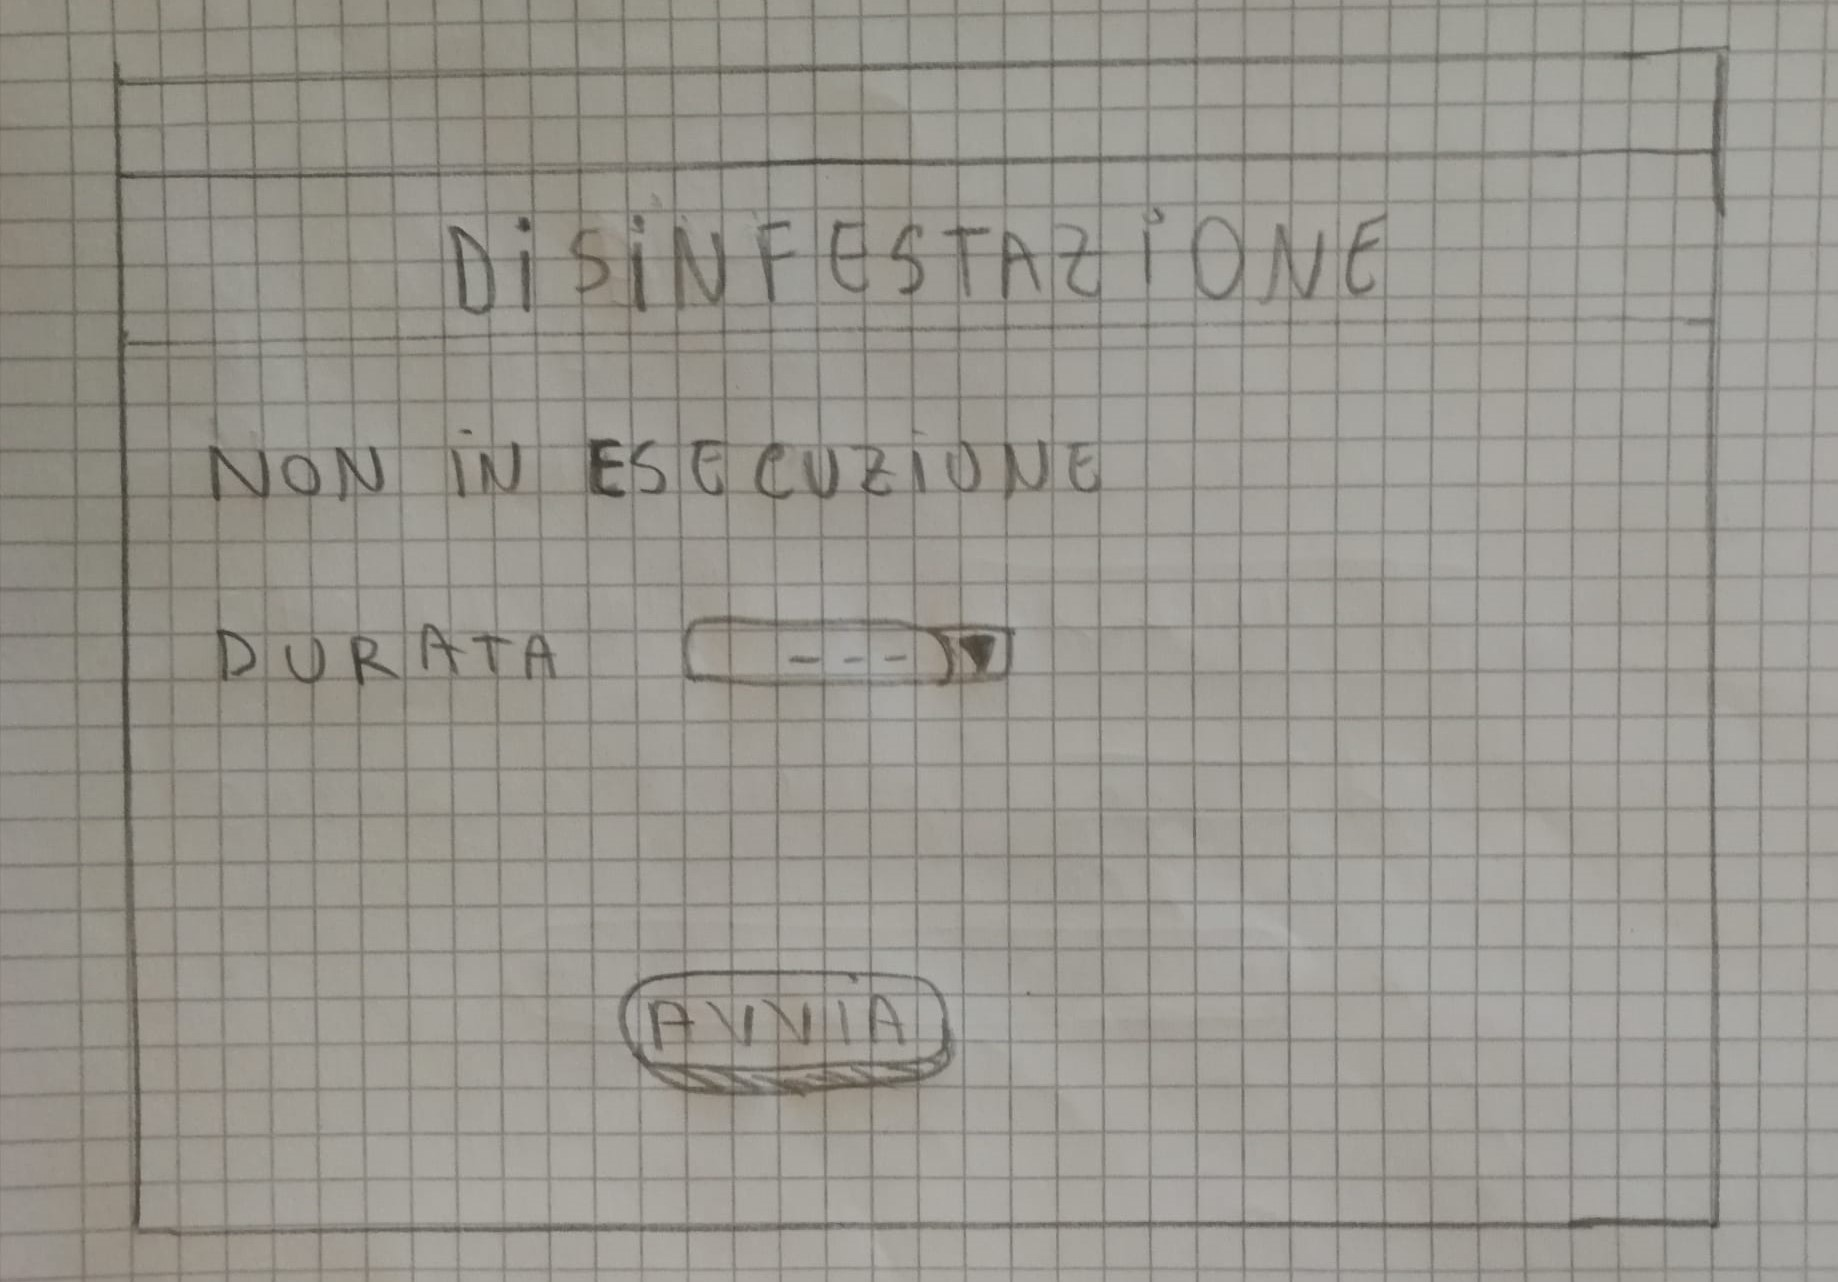 DiSiNFESTAZiONE
NON iN ESECUZiONE
DURATA ---
AVViA